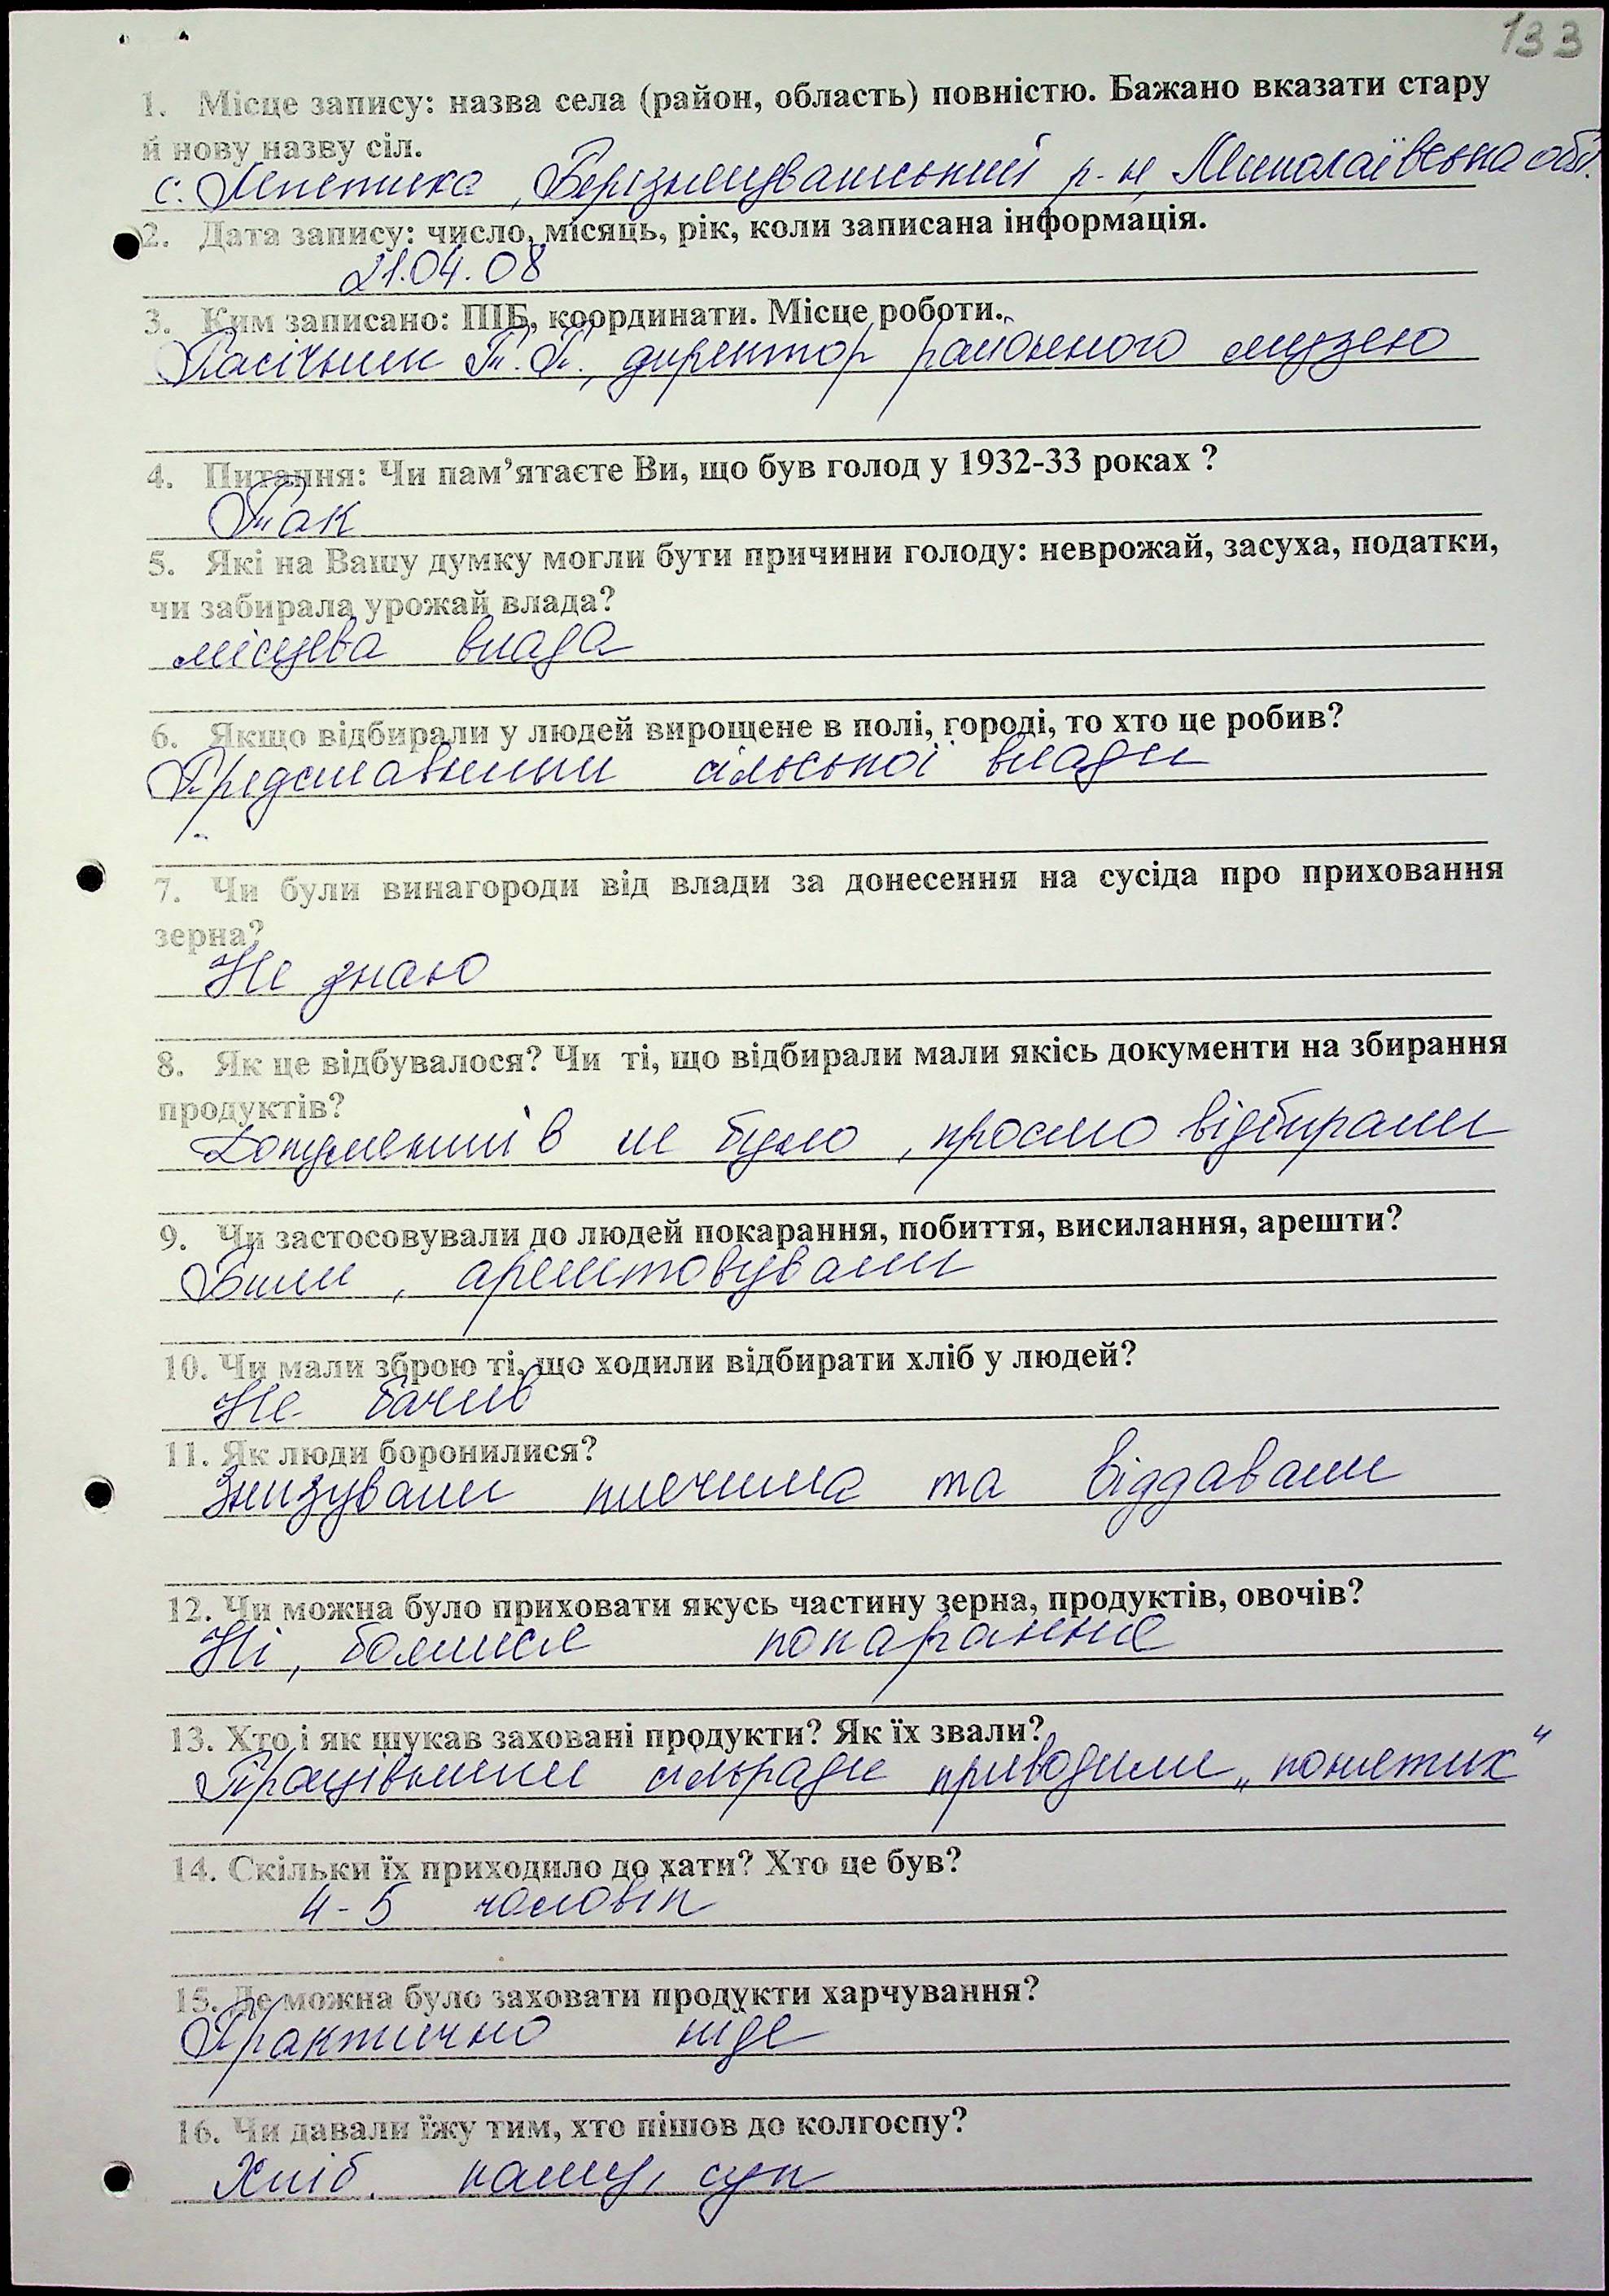 133
1. Місце запису: назва села (район, область) повністю. Бажано вказати стару
й нову назву сіл.
с. Лепетиха, Березнегуватський р-н, Миколаївська обл.
2. Дата запису: число, місяць, рік, коли записана інформація.
21.04.08
3. Ким записано: ПІБ, координати. Місце роботи.
Пасічник Т. П., директор районного музею
4. Питання: Чи пам’ятаєте Ви, що був голод у 1932-33 роках ?
Так
5. Які на Вашу думку могли бути причини голоду: неврожай, засуха, податки,
чи забирала урожай влада?
місцева влада
6. Якщо відбирали у людей вирощене в полі, городі, то хто це робив?
Представники сільської влади
7. Чи були винагороди від влади за донесення на сусіда про приховання
зерна?
Не знаю
8. Як це відбувалося? Чи ті, що відбирали мали якісь документи на збирання
продуктів?
Документів не було, просто відбирали
9. Чи застосовували до людей покарання, побиття, висилання, арешти?
Били, арештовували
10. Чи мали зброю ті, що ходили відбирати хліб у людей?
Не бачив
11. Як люди боронилися?
Знизували плечима та віддавали
12. Чи можна було приховати якусь частину зерна, продуктів, овочів?
Ні, боялися покарання
13. Хто і як шукав заховані продукти? Як їх звали?
Працівники сільради приводили „понятих“
14. Скільки їх приходило до хати? Хто це був?
4-5 чоловік
15. Де можна було заховати продукти харчування?
Практично ніде
16. Чи давали їжу тим, хто пішов до колгоспу?
Хліб, кашу, суп